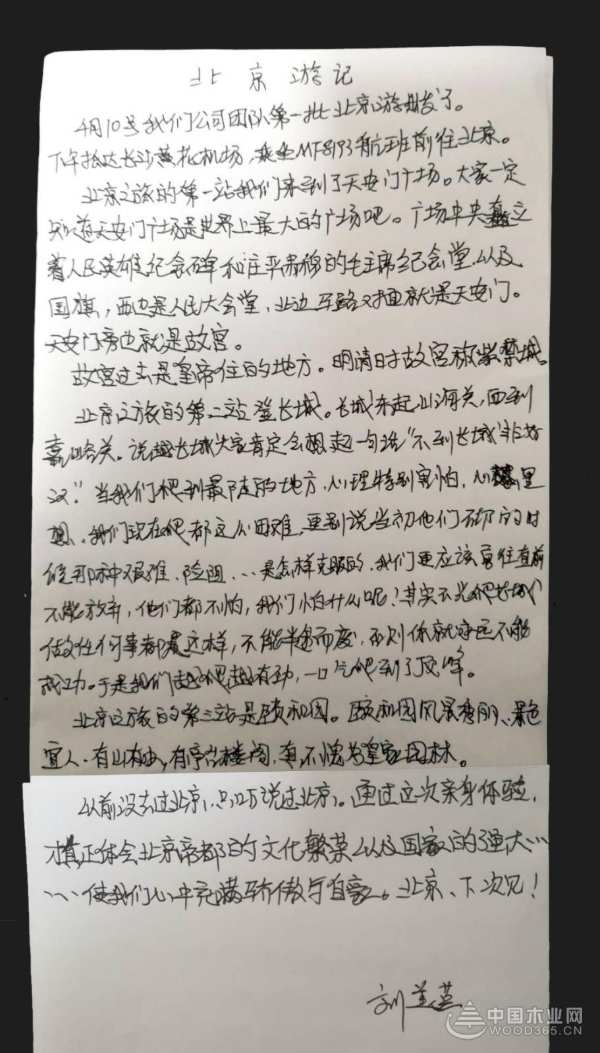 北京游记
4月10号我们公司团队第一批北京游出发了。
下午抵达长沙黄花机场,乘坐MF8193航班前往北京。
北京之旅的第一站我们来到了天安门广场。大家一定
知道天安门广场是世界上最大的广场吧。广场中央矗立
着人民英雄纪念碑和庄严肃穆的毛主席纪念堂以及
国旗,西边是人民大会堂,北边马路对面就是天安门。
天安门旁边就是故宫。
故宫过去是皇帝住的地方。明清时故宫称紫禁城。
北京之旅的第二站登长城。长城东起山海关,西到
嘉峪关。说起长城大家肯定会想起一句话"不到长城非好
汉"当我们爬到最陡的地方,心理特别害怕,心里
想,我们现在爬都这么困难,更别说当初他们的时
候那种艰难、险阻…是怎样克服的,我们更应该勇往直前
不能放弃,他们都不怕,我们怕什么呢!其实不光爬长城
做任何事都是这样,不能半途而废,否则你就永远不能
成功。于是我们越爬越有劲,一口气爬到了顶峰。
北京之旅的第三站是颐和园。颐和园风景秀丽、景色
宜人,有山有水,有亭台楼阁,真不愧为皇家园林。
以前没去过北京,只听说过北京。通过这次亲身体验,
才真正体会北京帝都的文化繁荣以及国家的强大……
……使我们心中充满骄傲与自豪。北京、下次见!
刘兰英
中国木业网
WOOD365.CN